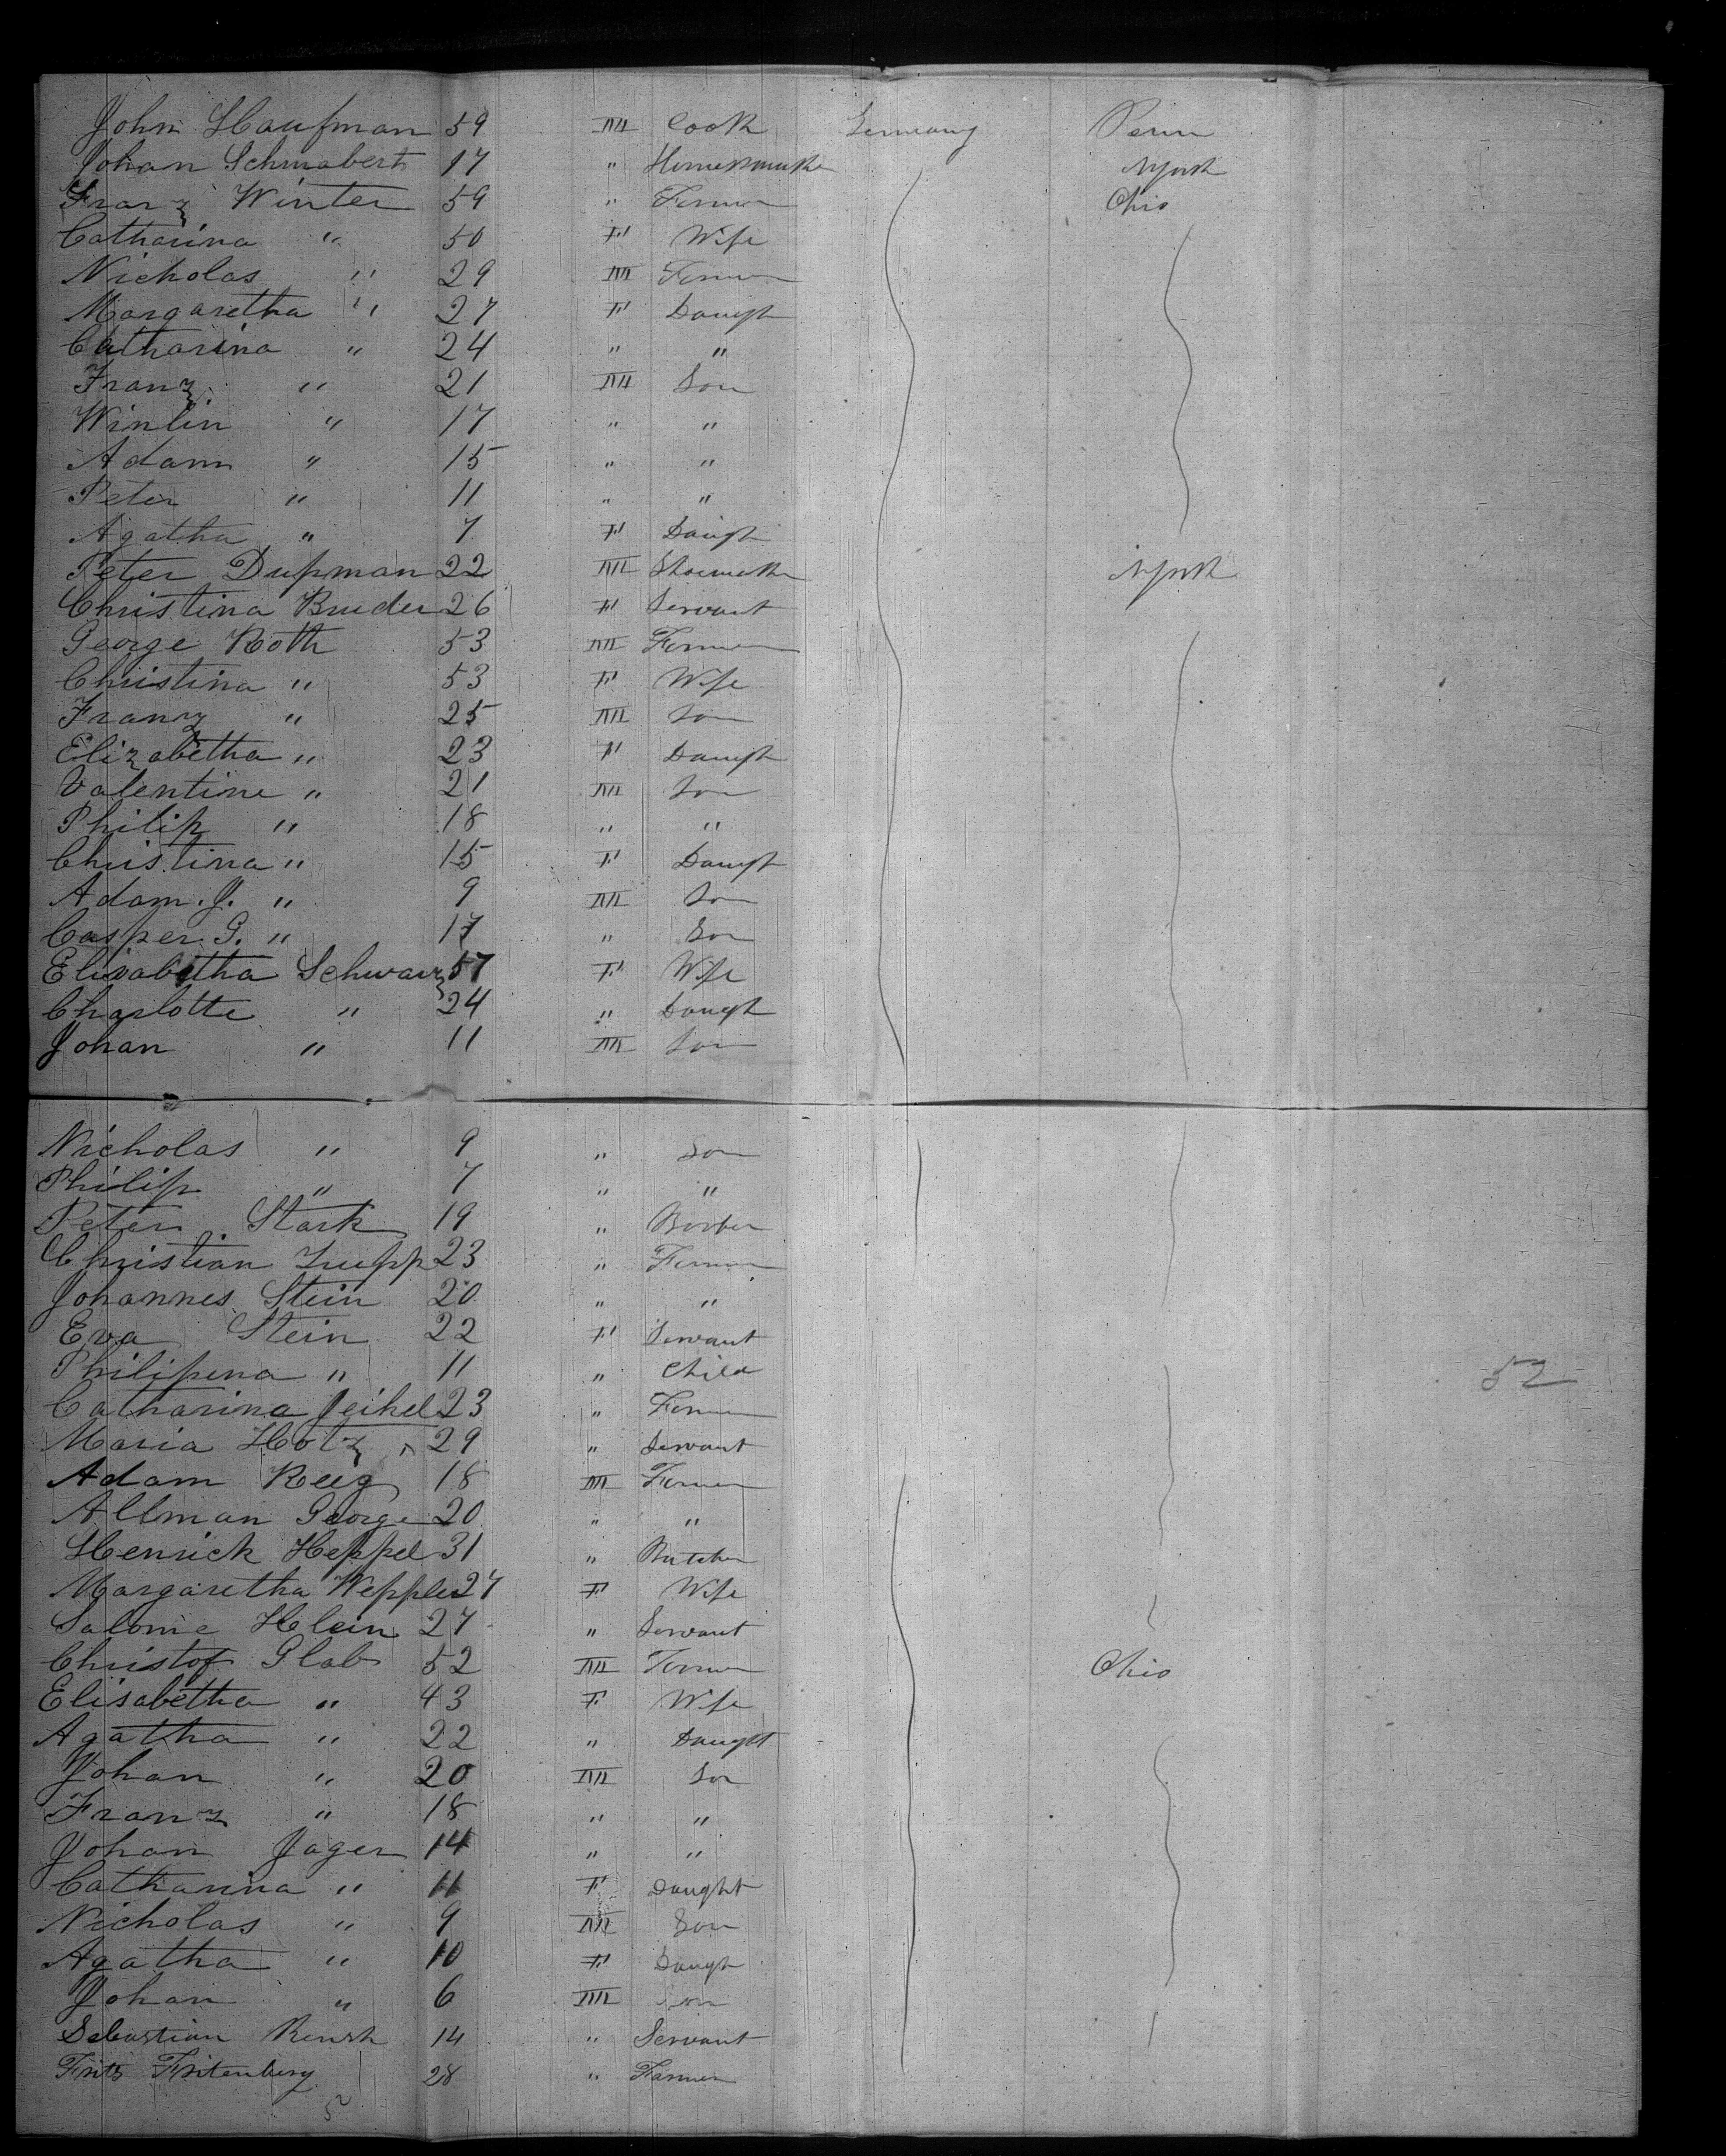 John Haufman 59 M Cook Germany Penn
Johan Schwabert 17 " NYork
Franz Winter 59 " Farmer Ohio
Catharina " 50 F Wife
Nicholas " 29 M Farmer
Margaretha " 27 F Daugh
Catharina " 24 " "
Franz " 21 M Son
Winlin " 17 " "
Adam " 15 " "
Peter " 11 " "
Agatha " 7 F Daugh
Peter Dupman 22 M Shoemaker NYork
Christina Bruder 26 F Servant
George Roth 53 M Farmer
Christina " 53 F Wife
Franz " 25 M Son
Elizabetha " 23 F Daugh
Valentine " 21 M Son
Philip " 18 " "
Christina " 15 F Daugh
Adam. J. " 9 M Son
Casper. G. " 17 " Son
Elisabetha Schwarz 57 F Wife
Charlotte " 24 " Daugh
Johan " 11 M Son
Nicholas " 9 " Son
Philip " 7 " "
Peter Stark 19 " Barber
Christian Zuepp 23 " Farmer
Johannes Stein 20 " "
Eva Stein 22 F Servant
Philipena " 11 " Child 52
Catharina Jeikel 23 " Farmer
Maria Hotz 29 " Servant
Adam Reeg 18 M Farmer
Allman George 20 " "
Henrick Heppel 31 " Butcher
Margaretha Weppler 27 F Wife
Salome Hlein 27 " Servant
Christof Glab 52 M Farmer Ohio
Elisabetha " 43 F Wife
Agatha " 22 " Daught
Johan " 20 M Son
Franz " 18 " "
Johan Jager 14 " "
Catharina " 11 F Daught
Nicholas " 9 M Son
Agatha " 10 F Daugh
Johan " 6 M Son
Sebastian 14 " Servant
Fritz Fritenburg 28 " Farmer